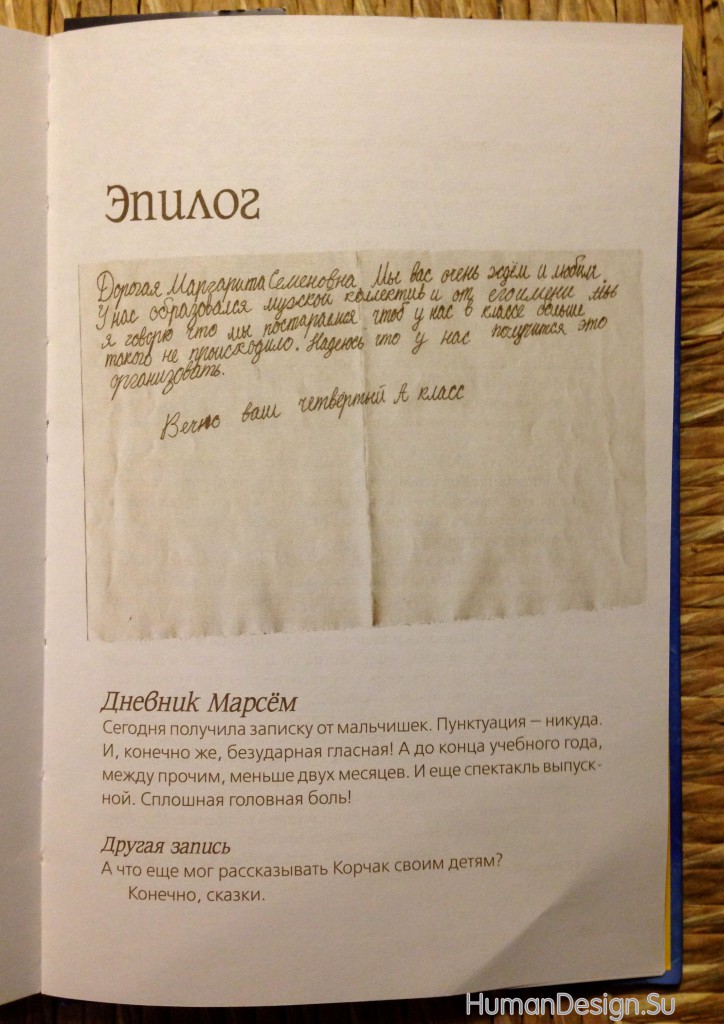 Эпилог
Дорогая Маргарита Семеновна Мы вас очень ждём и любим.
У нас образовался мужской коллектив и от его имени
я говорю что мы постараемся чтоб у нас в классе больше
такого не происходило. Надеюсь что у нас получится это
организовать.
Вечно ваш четвертый А класс
Дневник Марсём
Сегодня получила записку от мальчишек. Пунктуация — никуда.
И, конечно же, безударная гласная! А до конца учебного года,
между прочим, меньше двух месяцев. И еще спектакль выпуск-
ной. Сплошная головная боль!
Другая запись
А что еще мог рассказывать Корчак своим детям?
Конечно, сказки.
HumanDesign.Su